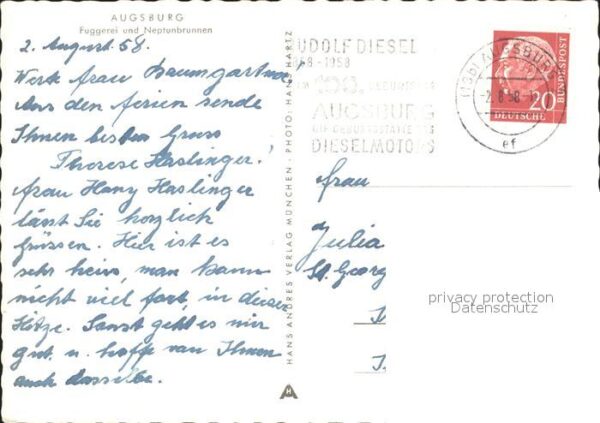 AUGSBURG
Fuggerei und Neptunbrunnen
2. August 58.
Werte Frau Baumgartner
Aus den Ferien sende
Ihnen besten Gruss
Therese Haslinger!
Frau Hany Haslinger
lässt Sie herzlich
grüssen. Hier ist es
sehr heiss, man kann
nicht viel fort, in dieser
Hitze. Sonst geht es mir
gut. u. hoffe von Ihnen
auch dasselbe.
HANS ANDRES VERLAG MÜNCHEN - PHOTO: HANS HARTZ
UDOLF DIESEL
58-1958
100. GEBURTSTAG
AUGSBURG
DIE GEBURTSSTÄTTE DES
DIESELMOTORS
(13b) AUGSBURG
-2.8.58
ef
20
DEUTSCHE
BUNDESPOST
Frau
Julia
St. Georg
privacy protection
Datenschutz